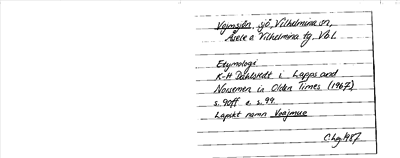 Vojmsjön, sjö, Vilhelmina sn,
Åsele o Vilhelmina tg, Vb l.
Etymologi
K-H Dahlstedt i Lapps and
Norsemen in Olden Times (1967)
s. 90ff o. s. 99.
Lapskt namn Vaajmue
C. hg 1987